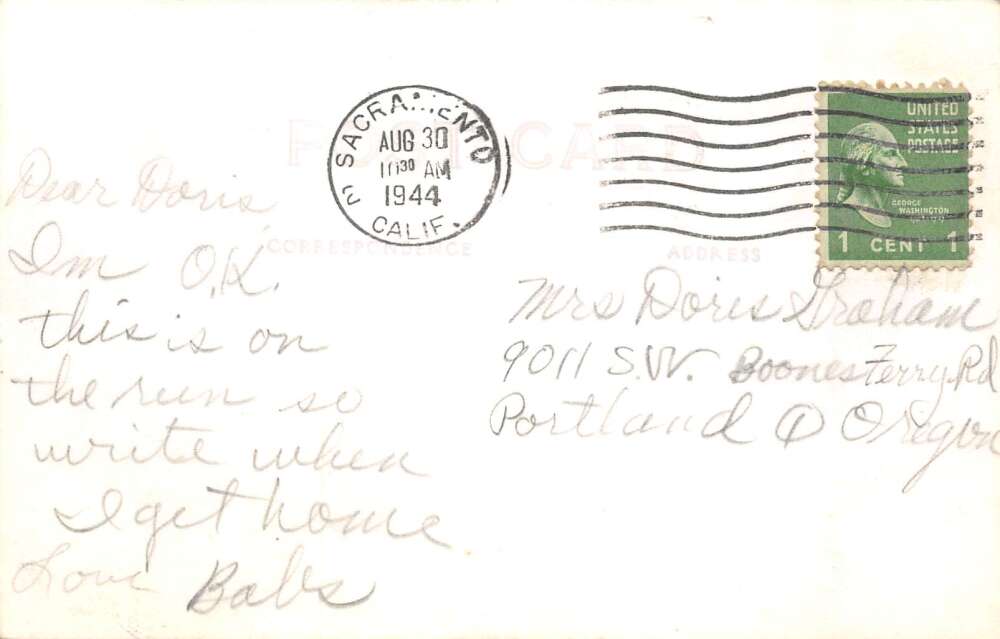 POST CARD
SACRAMENTO
AUG 30
10 30 AM
1944
2
CALIF.
UNITED
STATES
POSTAGE
GEORGE
WASHINGTON
1 CENT 1
CORRESPONDENCE
ADDRESS
Dear Doris
Im O.K.
this is on
the run so
write when
I get home
Love Babs
Mrs Doris Graham
9011 S.W. Boones Ferry Rd
Portland Oregon